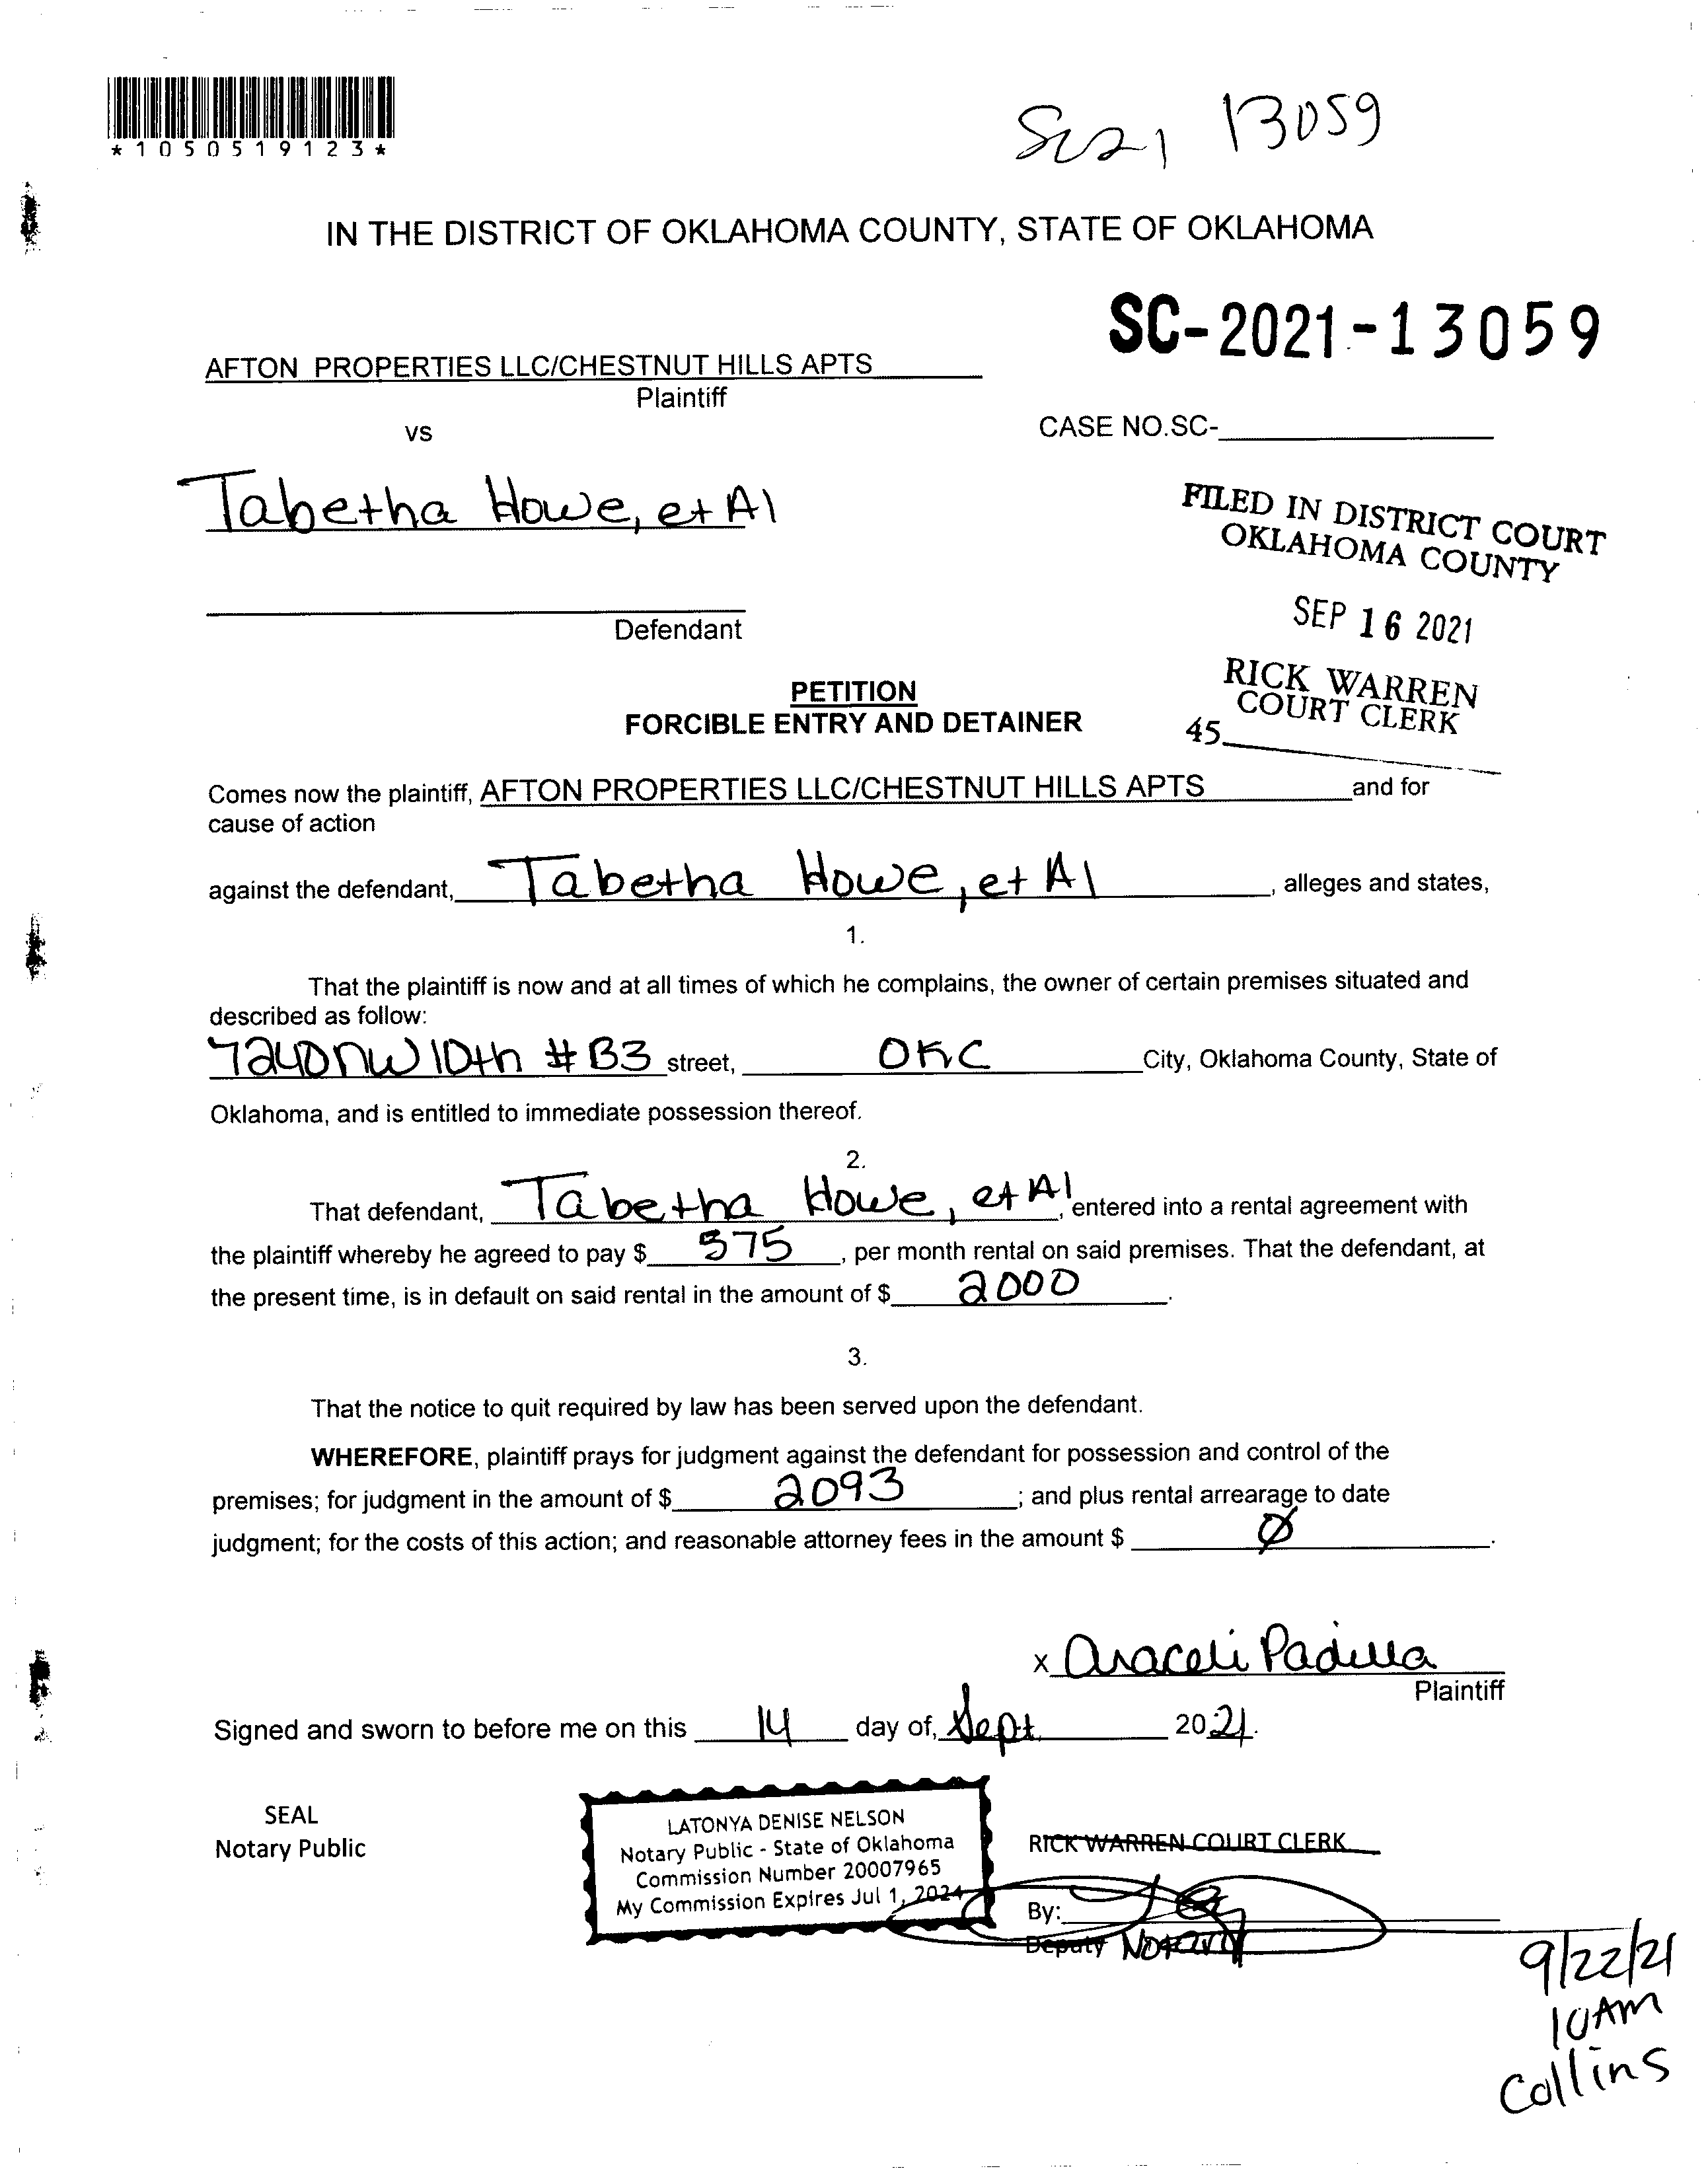 *1050519123*
SC21 13059
IN THE DISTRICT OF OKLAHOMA COUNTY, STATE OF OKLAHOMA
SC-2021-13059
AFTON PROPERTIES LLC/CHESTNUT HILLS APTS
Plaintiff
vs
CASE NO.SC-
Tabetha Howe, et Al
FILED IN DISTRICT COURT
OKLAHOMA COUNTY
SEP 16 2021
Defendant
RICK WARREN
COURT CLERK
45
PETITION
FORCIBLE ENTRY AND DETAINER
Comes now the plaintiff, AFTON PROPERTIES LLC/CHESTNUT HILLS APTS and for
cause of action
against the defendant, Tabetha Howe, et Al, alleges and states,
1.
That the plaintiff is now and at all times of which he complains, the owner of certain premises situated and
described as follow:
7240 NW 10th #B3 street, OKC City, Oklahoma County, State of
Oklahoma, and is entitled to immediate possession thereof.
2.
That defendant, Tabetha Howe, et Al, entered into a rental agreement with
the plaintiff whereby he agreed to pay $ 575, per month rental on said premises. That the defendant, at
the present time, is in default on said rental in the amount of $ 2000.
3.
That the notice to quit required by law has been served upon the defendant.
WHEREFORE, plaintiff prays for judgment against the defendant for possession and control of the
premises; for judgment in the amount of $ 2093; and plus rental arrearage to date
judgment; for the costs of this action; and reasonable attorney fees in the amount $ Ø.
x Araceli Padilla
Plaintiff
Signed and sworn to before me on this 14 day of, Sept. 2021.
SEAL
Notary Public
LATONYA DENISE NELSON
Notary Public - State of Oklahoma
Commission Number 20007965
My Commission Expires Jul 1, 2024
RICK WARREN COURT CLERK
By:
Deputy Notary
9/22/21
10AM
Collins